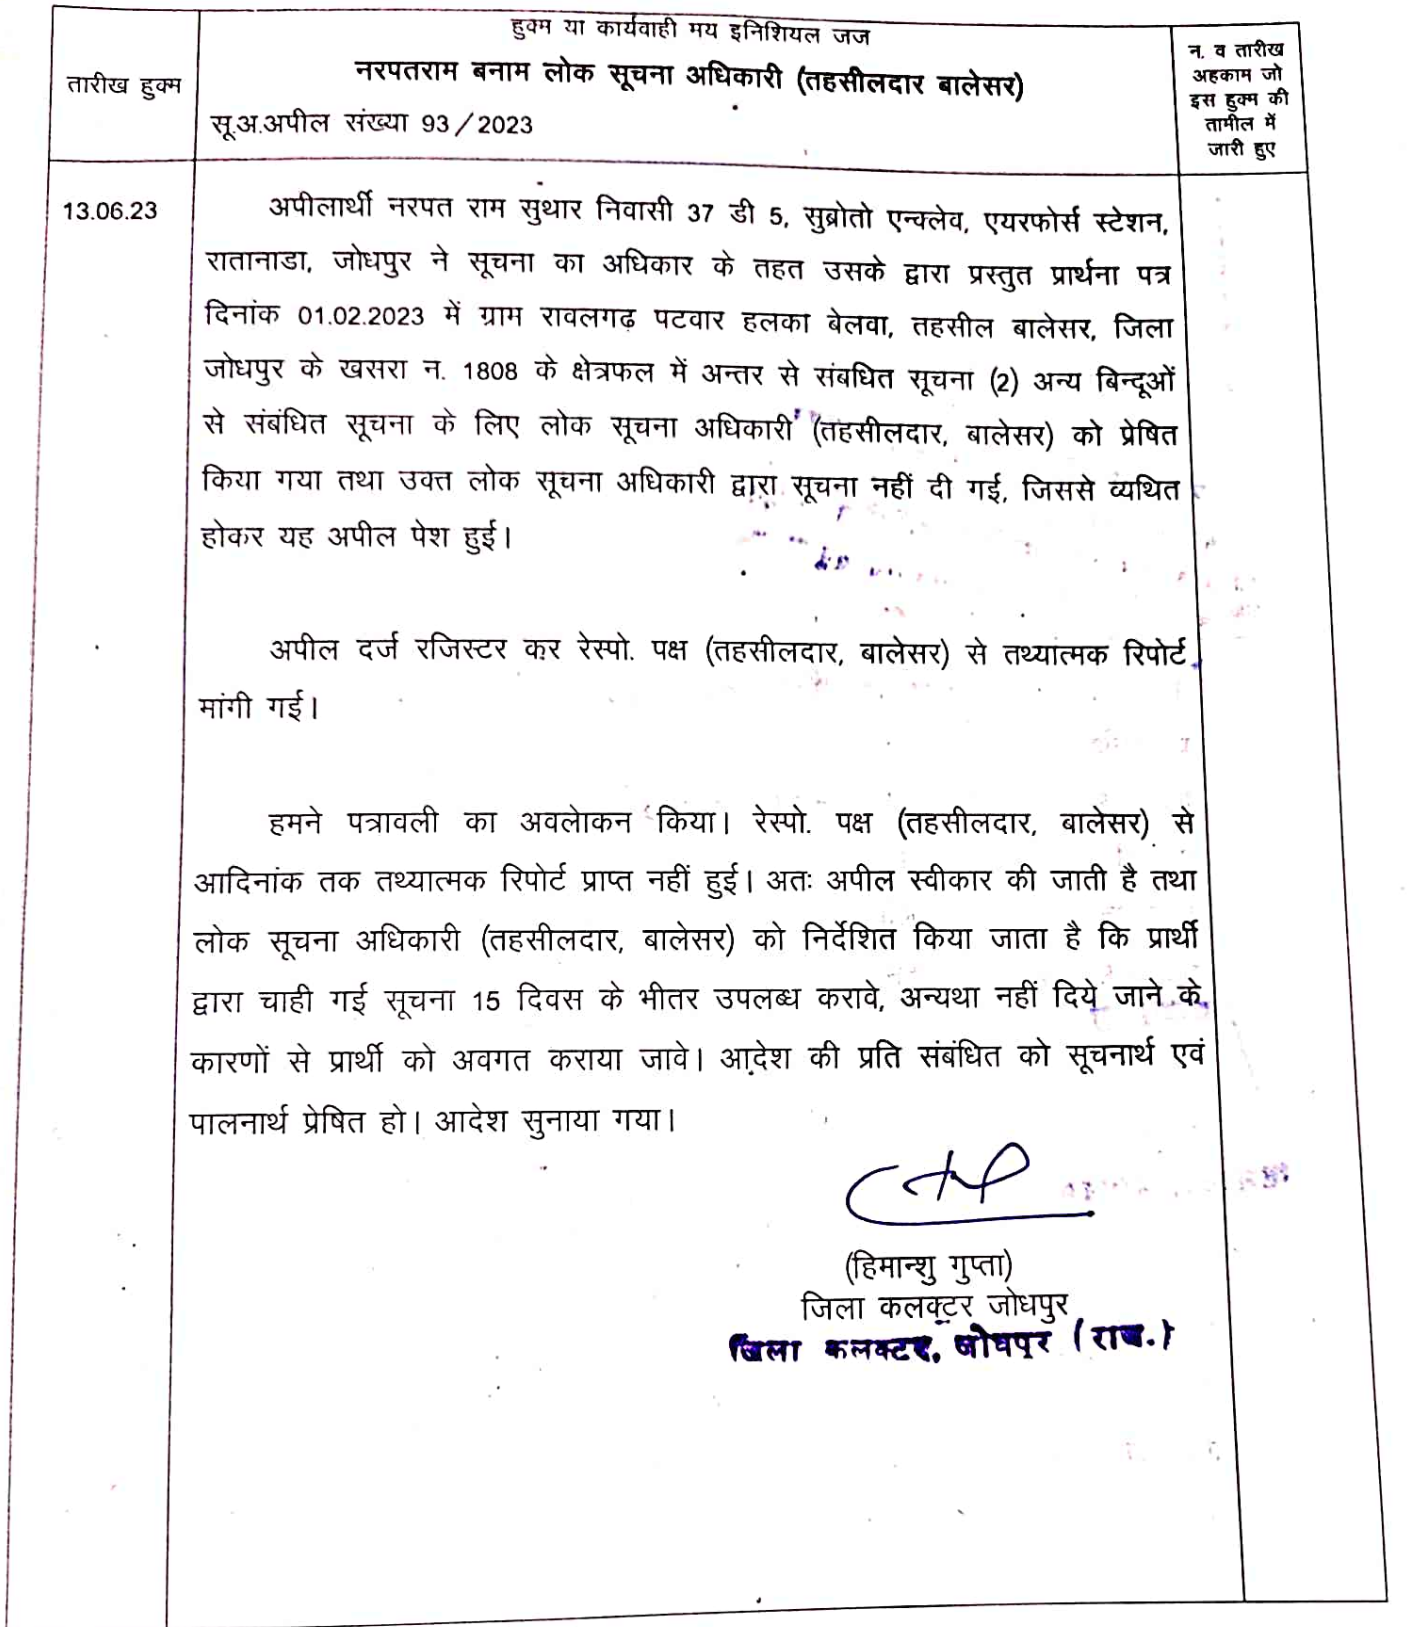 तारीख हुक्म
हुक्म या कार्यवाही मय इनिशियल जज
नरपतराम बनाम लोक सूचना अधिकारी (तहसीलदार बालेसर)
सू.अ.अपील संख्या 93/2023
न. व तारीख
अहकाम जो
इस हुक्म की
तामील में
जारी हुए
13.06.23
अपीलार्थी नरपत राम सुथार निवासी 37 डी 5, सुब्रोतो एन्क्लेव, एयरफोर्स स्टेशन,
रातानाडा, जोधपुर ने सूचना का अधिकार के तहत उसके द्वारा प्रस्तुत प्रार्थना पत्र
दिनांक 01.02.2023 में ग्राम रावलगढ़ पटवार हलका बेलवा, तहसील बालेसर, जिला
जोधपुर के खसरा न. 1808 के क्षेत्रफल में अन्तर से संबधित सूचना (2) अन्य बिन्दूओं
से संबंधित सूचना के लिए लोक सूचना अधिकारी (तहसीलदार, बालेसर) को प्रेषित
किया गया तथा उक्त लोक सूचना अधिकारी द्वारा सूचना नहीं दी गई, जिससे व्यथित
होकर यह अपील पेश हुई।
अपील दर्ज रजिस्टर कर रेस्पो. पक्ष (तहसीलदार, बालेसर) से तथ्यात्मक रिपोर्ट
मांगी गई।
हमने पत्रावली का अवलोकन किया। रेस्पो. पक्ष (तहसीलदार, बालेसर) से
आदिनांक तक तथ्यात्मक रिपोर्ट प्राप्त नहीं हुई। अतः अपील स्वीकार की जाती है तथा
लोक सूचना अधिकारी (तहसीलदार, बालेसर) को निर्देशित किया जाता है कि प्रार्थी
द्वारा चाही गई सूचना 15 दिवस के भीतर उपलब्ध करावे, अन्यथा नहीं दिये जाने के
कारणों से प्रार्थी को अवगत कराया जावे। आदेश की प्रति संबंधित को सूचनार्थ एवं
पालनार्थ प्रेषित हो। आदेश सुनाया गया।
(हिमान्शु गुप्ता)
जिला कलक्टर जोधपुर
जिला कलक्टर, जोधपुर (राज.)